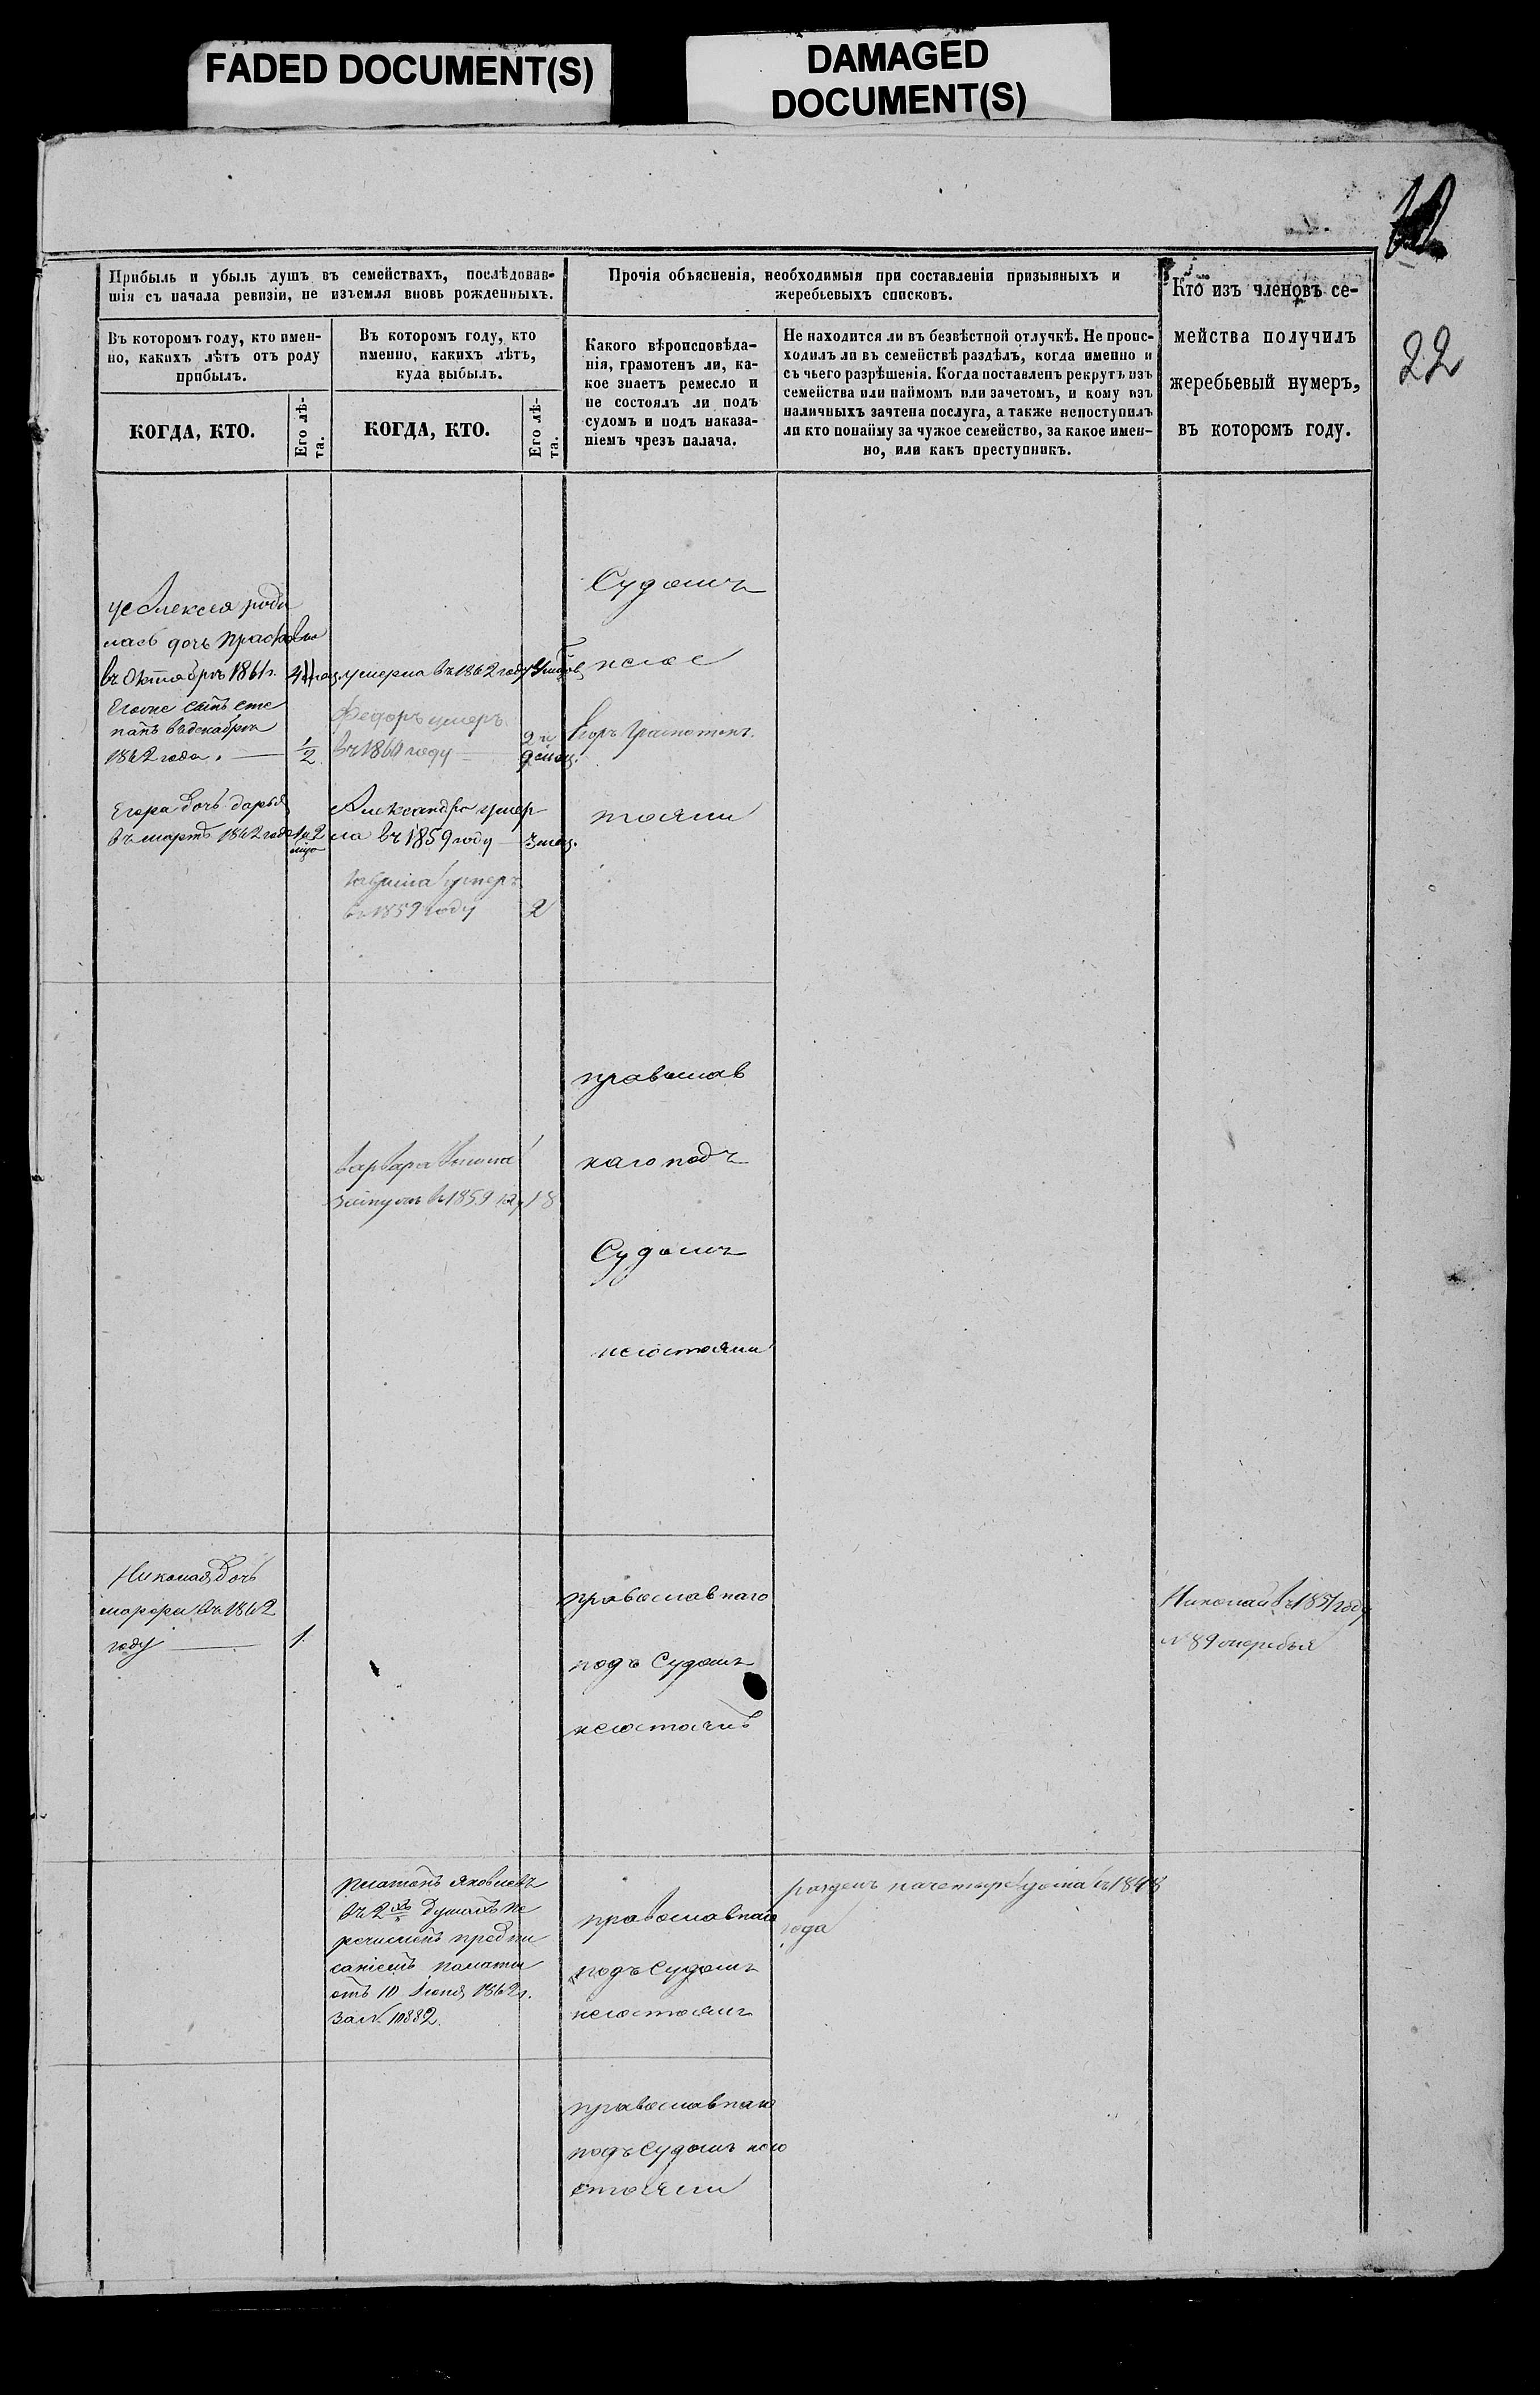 FADED DOCUMENT(S)
DAMAGED
DOCUMENT(S)
22
Прибыль и убыль душъ въ семействахъ, послѣдовав-
шія съ начала ревизіи, не изъемля вновь рожденныхъ.
Прочія объясненія, необходимыя при составленіи призывныхъ и
жеребьевыхъ списковъ.
Кто изъ членовъ се-
мейства получилъ
жеребьевый нумеръ,
въ которомъ году.
Въ которомъ году, кто имен-
но, какихъ лѣтъ отъ роду
прибылъ.
Въ которомъ году, кто
именно, какихъ лѣтъ,
куда выбылъ.
Какого вѣроисповѣда-
нія, грамотенъ ли, ка-
кое знаетъ ремесло и
не состоялъ ли подъ
судомъ и подъ наказа-
ніемъ чрезъ палача.
Не находится ли въ безвѣстной отлучкѣ. Не проис-
ходилъ ли въ семействѣ раздѣлъ, когда именно и
съ чьего разрѣшенія. Когда поставленъ рекрутъ изъ
семейства или наймомъ или зачетомъ, и кому изъ
наличныхъ зачтена послуга, а также непоступилъ
ли кто понайму за чужое семейство, за какое имен-
но, или какъ преступникъ.
КОГДА, КТО.
Его лѣ-
та.
КОГДА, КТО.
Его лѣ-
та.
уАлексея роди
лась дочь Прасковья
въ Октябрѣ 1861 г.
Егоже сынъ Сте
панъ вдекабрѣ
1862 года. — 1/2
Егора дочь дарья
въ мартѣ 1862 года 1 и 2
умерла въ 1862 году
Федоръ умеръ
въ 1860 году — 2 и
9 мѣс.
Александра умер
ла въ 1859 году — 3 мѣс.
умеръ
въ 1859 году 2
Судомъ
несос
Егоръ Грамотенъ.
тояли
Варвара
замужъ въ 1859 году 18
православ
наго подъ
Судомъ
несостояли
Николая дочь
марфа въ 1862
году — 1.
православнаго
подъ Судомъ
несостоялъ
Николай въ 1851 году
№ 89 жеребья
платонъ Яковлевъ
въ 2хъ душахъ пе
речисленъ предпи
саніемъ палаты
отъ 10 Іюня 1862 г.
за № 10882.
православнаго
подъ Судомъ
несостоялъ
разделъ въ 1848
года
православнаго
подъ Судомъ несо
стояли